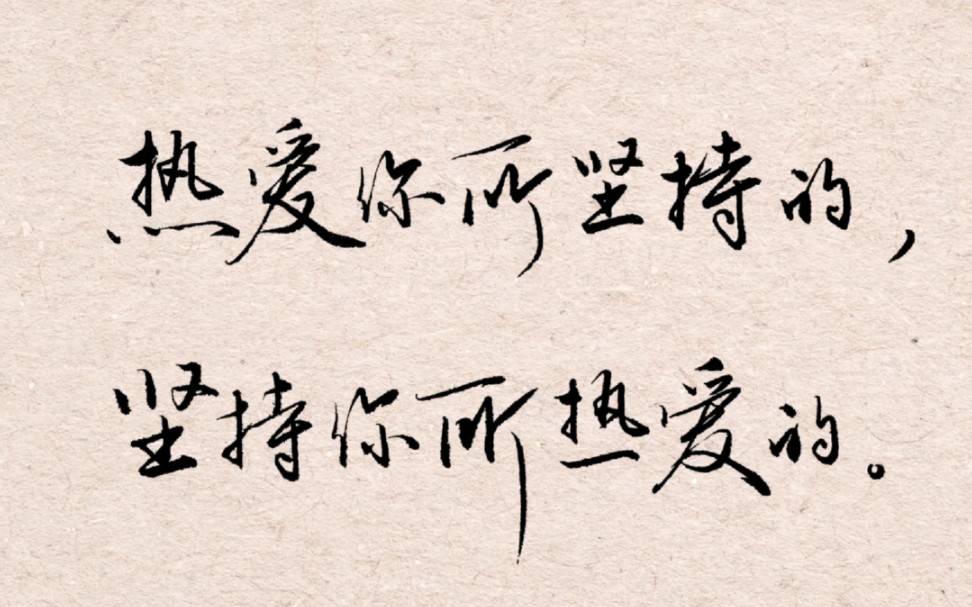 热爱你所坚持的，
坚持你所热爱的。